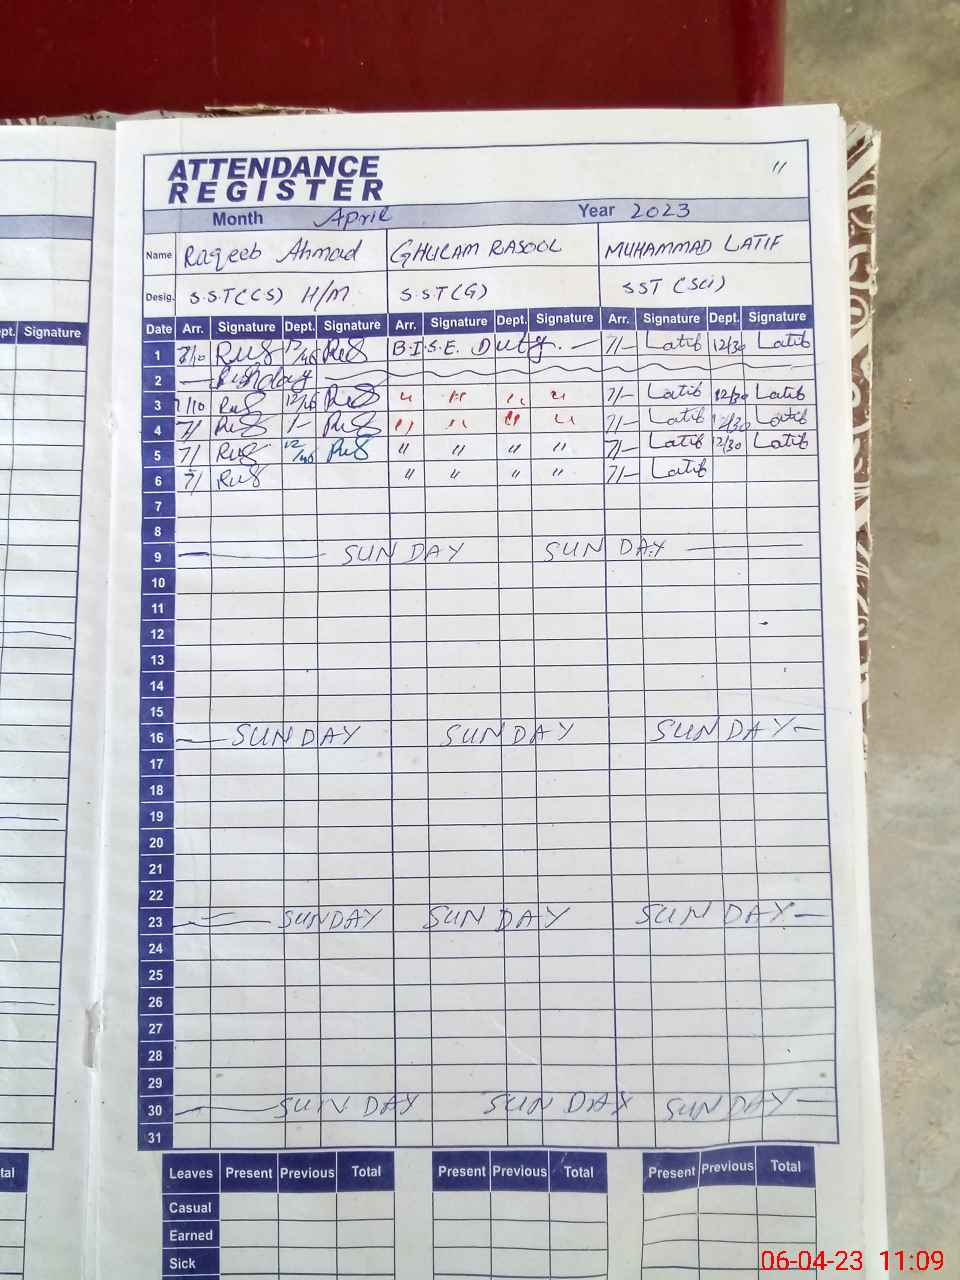 ATTENDANCE
REGISTER
"
Month April Year 2023
Name Raqeeb Ahmad GHULAM RASOOL MUHAMMAD LATIF
Desig. S.S.T(CS) H/M S.S.T(G) SST (Sci)
pt. Signature
Date Arr. Signature Dept. Signature Arr. Signature Dept. Signature Arr. Signature Dept. Signature
1 7/10 B.I.S.E. Duty. 7/- Latif 12/30 Latif
2 Sunday
3 7/10 " " " " 7/- Latif 12/30 Latif
4 7/ 1- " " " " 7/- Latif 12/30 Latif
5 7/ 12/40 " " " " 7/- Latif 12/30 Latif
6 7/ " " " " 7/- Latif
7
8
9 SUNDAY SUNDAY
10
11
12
13
14
15
16 SUNDAY SUNDAY SUNDAY
17
18
19
20
21
22
23 SUNDAY SUNDAY SUNDAY
24
25
26
27
28
29
30 SUNDAY SUNDAY SUNDAY
31
tal
Leaves Present Previous Total Present Previous Total Present Previous Total
Casual
Earned
Sick
06-04-23 11:09